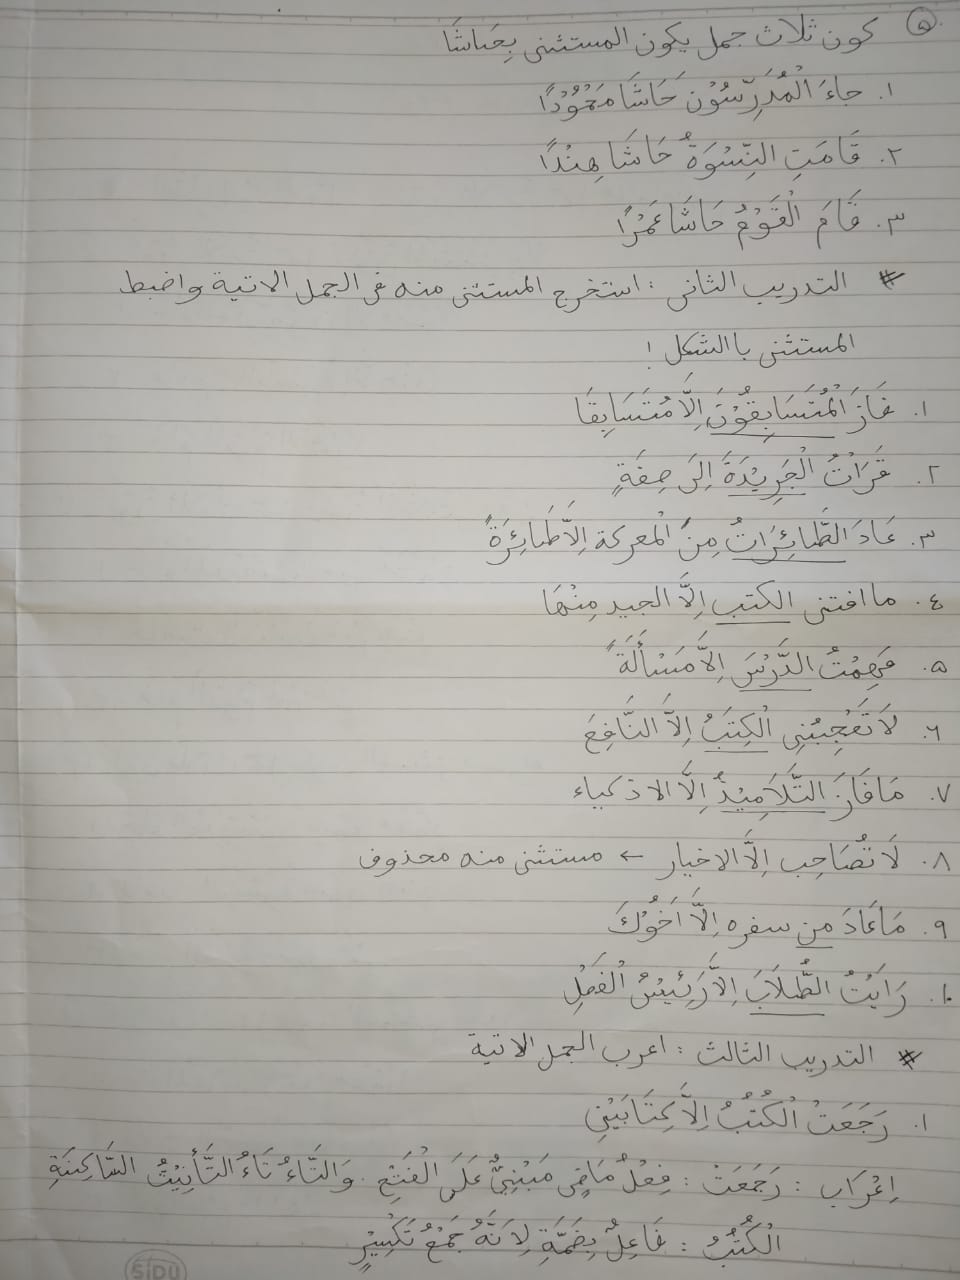 ٥ كون ثلاث جمل يكون المستثنى بِحَاشَا
١. جاءَ الْمُدَرِّسُوْنَ حَاشَا مَحْمُوْدًا
٢. قَامَتِ النِّسْوَةُ حَاشَا هِنْدًا
٣. قَامَ الْقَوْمُ حَاشَا عَمْرًا
# التدريب الثانى : استخرج المستثنى منه فى الجمل الاتية واضبط
المستثنى باالشكل !
١. فَازَ الْمُتَسَابِقُوْنَ اِلَّا مُتَسَابِقًا
٢. قَرَاْتُ الْجَرِيْدَةَ اِلَى صِفَةٍ
٣. عَادَ الطَّائِرَاتُ مِنَ الْمعركة اِلَّا طَائِرَةً
٤. ما افتنى الكتب اِلَّا الجيد مِنْهَا
٥. فَهِمْتُ الدَّرْسَ اِلَّا مَسْأَلَةً
٦. لَا تَعْجِبُنِى الْكِتَبُ اِلَّا النَّافِعَ
٧. مَا فَازَ التَّلَامِيْذُ اِلَّا الاذكياء
٨. لَا تُصَاحِب اِلَّا الاخيار ← مستثنى منه محذوف
٩. مَا عَادَ من سفره اِلَّا اَخُوْكَ
١٠. رَايْتُ الطُّلَابَ اِلَّا رَئِيْسُ الْفَصْلِ
# التدريب الثالث : اعرب الجمل الاتية
١. رَجَعَتْ الْكُتُبُ اِلَّا كِتَابَيْنِ
اِعْرَاب : رَجَعَتْ : فِعْلٌ مَاضٍى مَبْنِيٌّ عَلَى الْفَتْحِ. وَالتَّاءُ تَاءُ التَّأْنِيْثُ السَّاكِنَةِ
الْكُتُبُ : فَاعِلٌ بِضَمَّةِ لِاَنَّهُ جَمْعُ تَكْسِيْرٍ
SIDU